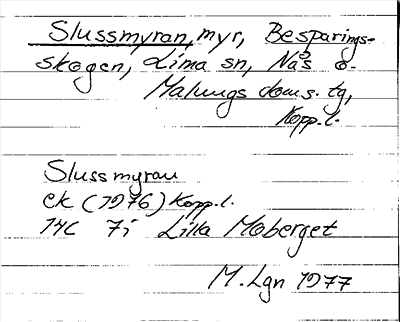 Slussmyran, myr, Besparings-
skogen, Lima sn, Nås o.
Malungs doms. tg,
Kopp.l.
Slussmyran
ek (1976) Kopp.l.
14C 7i Lilla Moberget
M. Lgn 1977